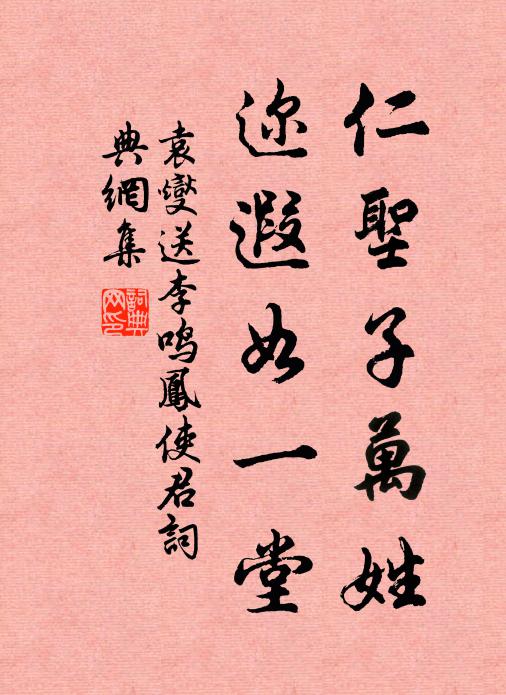 仁聖子萬姓
邇遐如一堂
袁燮送李鳴鳳使君詞
典網集
詞典網印